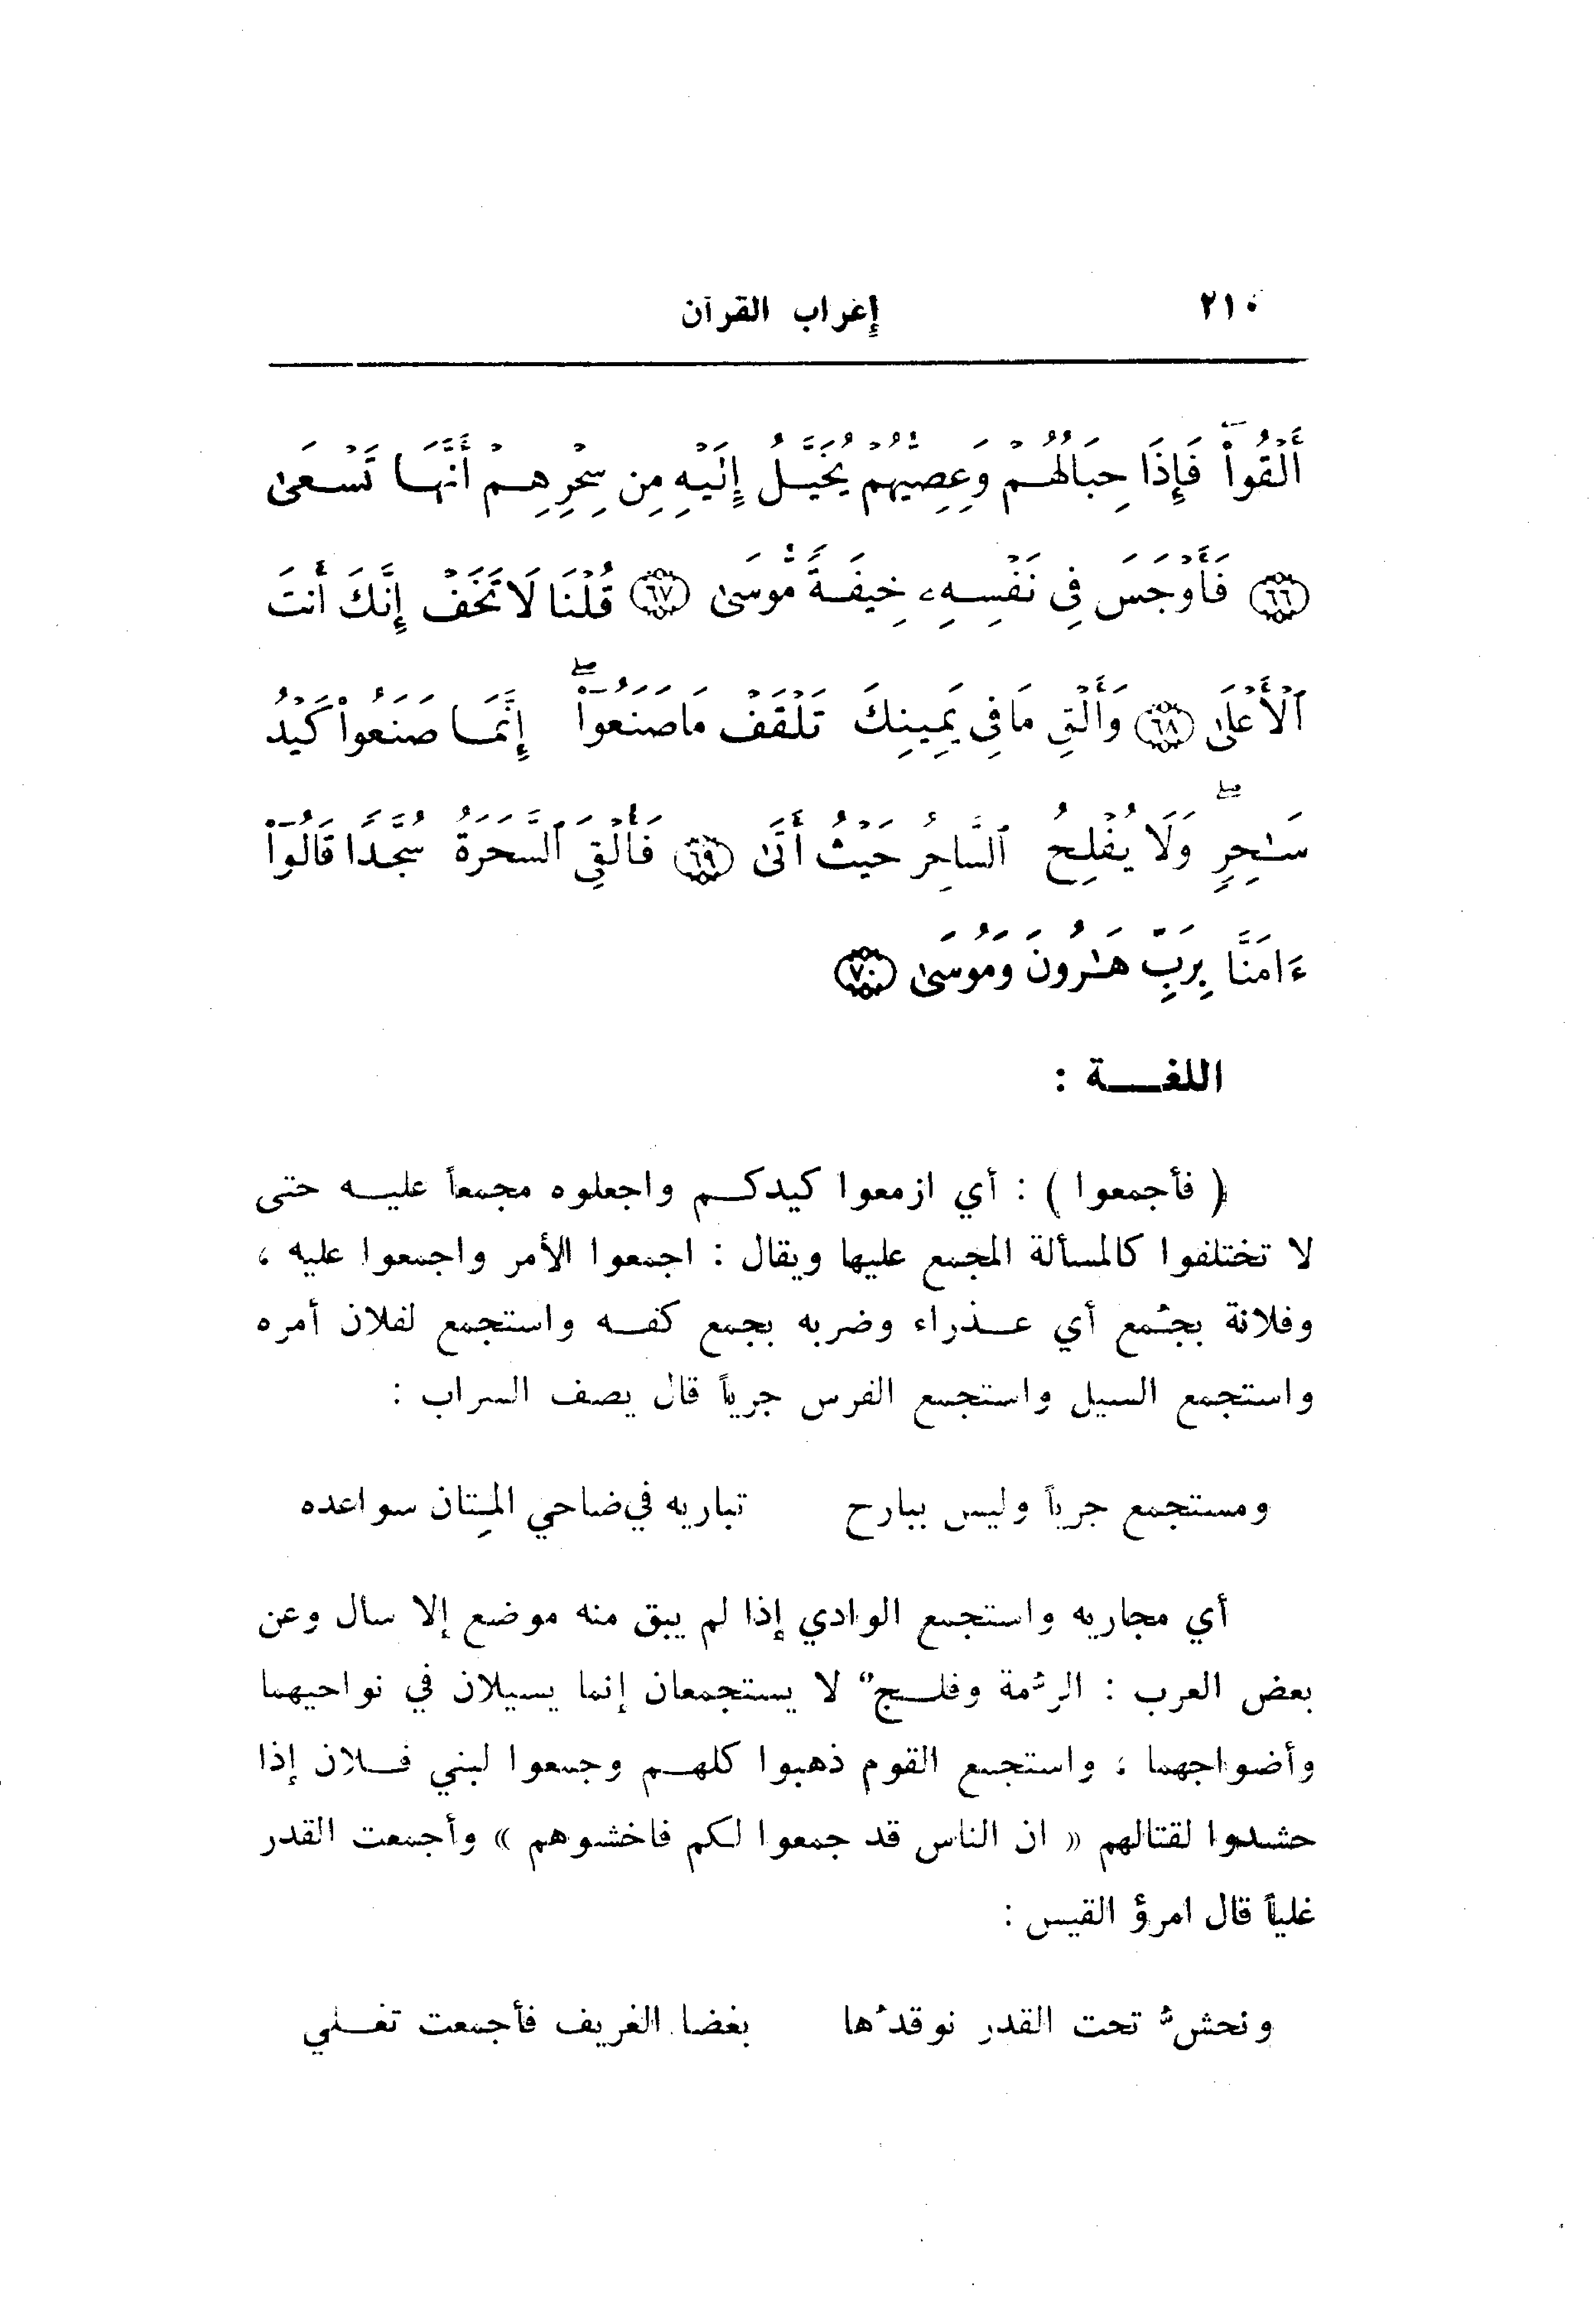 ٢١٠ إعراب القرآن
أَلْقُوا۟ فَإِذَا حِبَالُهُمْ وَعِصِيُّهُمْ يُخَيَّلُ إِلَيْهِ مِن سِحْرِهِمْ أَنَّهَا تَسْعَىٰ
﴿٦٦﴾ فَأَوْجَسَ فِى نَفْسِهِۦ خِيفَةً مُّوسَىٰ ﴿٦٧﴾ قُلْنَا لَا تَخَفْ إِنَّكَ أَنتَ
ٱلْأَعْلَىٰ ﴿٦٨﴾ وَأَلْقِ مَا فِى يَمِينِكَ تَلْقَفْ مَا صَنَعُوٓا۟ ۖ إِنَّمَا صَنَعُوا۟ كَيْدُ
سَـٰحِرٍ ۖ وَلَا يُفْلِحُ ٱلسَّاحِرُ حَيْثُ أَتَىٰ ﴿٦٩﴾ فَأُلْقِىَ ٱلسَّحَرَةُ سُجَّدًا قَالُوٓا۟
ءَامَنَّا بِرَبِّ هَـٰرُونَ وَمُوسَىٰ ﴿٧٠﴾
اللغـــة :
( فأجمعوا ) : أي ازمعوا كيدكم واجعلوه مجمعاً عليه حتى
لا تختلفوا كالمسألة المجمع عليها ويقال : اجمعوا الأمر واجمعوا عليه ،
وفلانة بجُمع أي عذراء وضربه بجمع كفه واستجمع لفلان أمره
واستجمع السيل واستجمع الفرس جرياً قال يصف السراب :
ومستجمع جرياً وليس ببارح تباريه في ضاحي المِتان سواعده
أي مجاريه واستجمع الوادي إذا لم يبق منه موضع إلا سال وعن
بعض العرب : الرُّمة وفلجٌ لا يستجمعان إنما يسيلان في نواحيهما
وأضواجهما ؛ واستجمع القوم ذهبوا كلهم وجمعوا لبني فلان إذا
حشدوا لقتالهم « ان الناس قد جمعوا لكم فاخشوهم » وأجمعت القدر
غلياً قال امرؤ القيس :
ونحشُّ تحت القدر نوقدُها بغضا الغريف فأجمعت تغلي